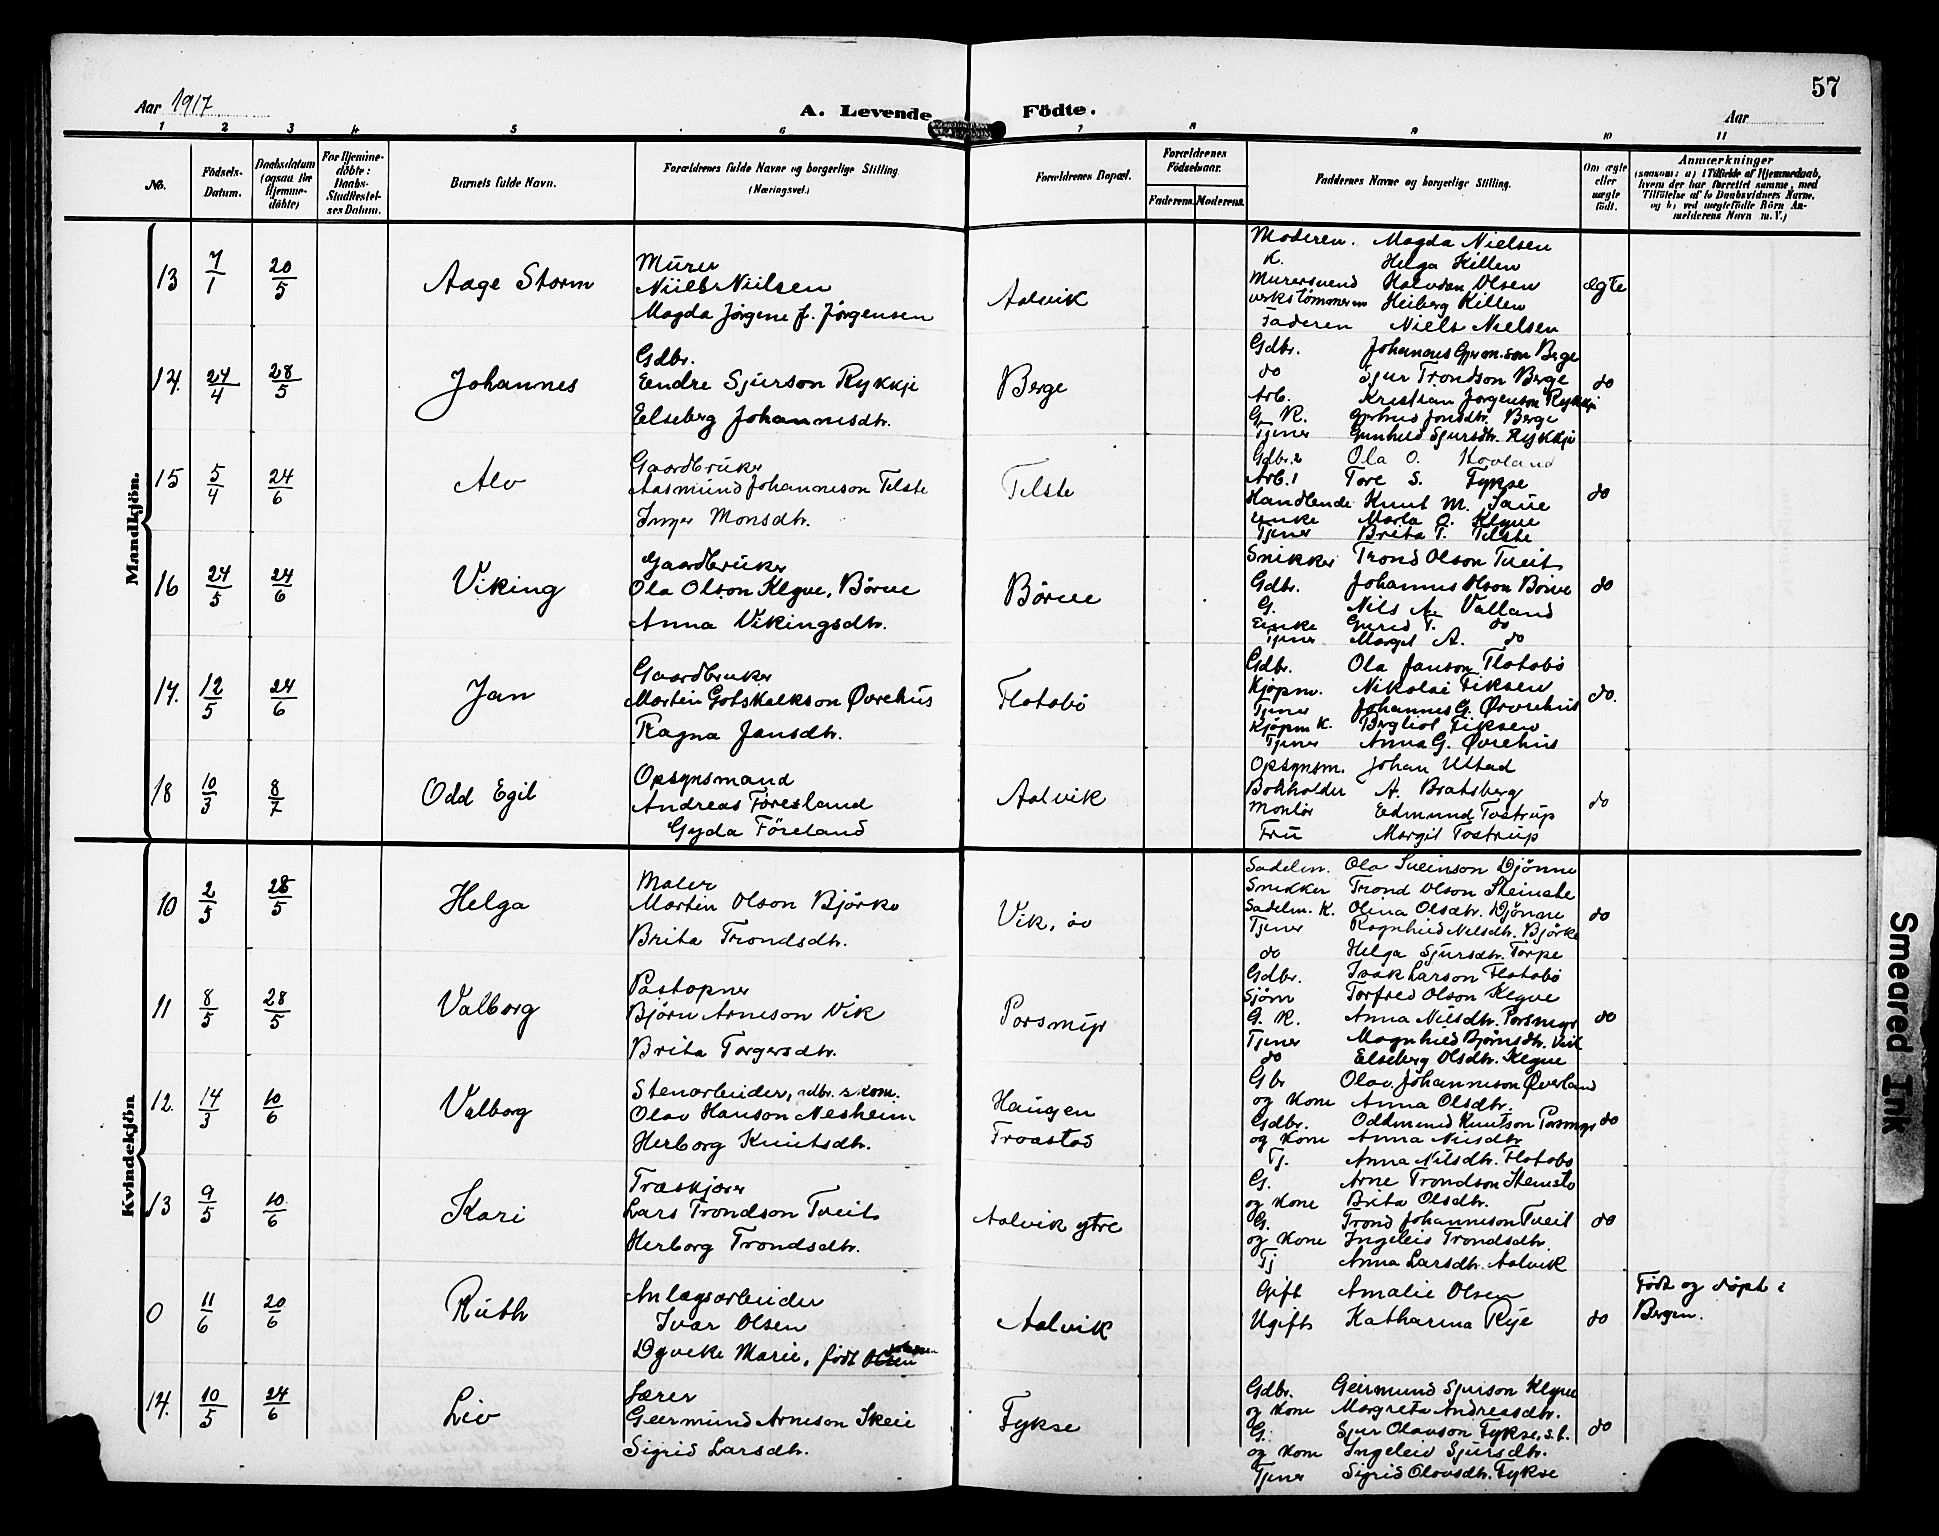 57
Aar 1917
A. Levende Födte.
Aar
1 2 3 4 5 6 7 8 9 10 11
No.
Födsels-Datum.
Daabsdatum (ogsaa for Hjemme-döbte)
For Hjemme-döbte: Daabs-Stadfæstel-ses Datum.
Barnets fulde Navn.
Forældrenes fulde Navne og borgerlige Stilling (Næringsvei.)
Forældrenes Bopæl.
Forældrenes Födselsaar.
Faderens. Moderens.
Faddernes Navne og borgerlige Stilling.
Om ægte eller uægte födt.
Anmærkninger
(saasom: a) i Tilfælde af Hjemmedaab, hvem der har forrettet samme, med Tilföielse af to Daabsvidners Navne, og b) ved uægtefödte Börn An-melderens Navn m. V.)
Mandkjön.
13 7/1 20/5 Aage Storm
Murer
Niels Nielsen
Magda Jørgine f. Jørgensen
Aalvik
Moderen. Magda Nielsen
K. Helga Killen
Murersvend Halvdan Olsen
Heiberg Killen
Faderen Niels Nielsen
ægte
14. 24/4 28/5 Johannes
Gdbr.
Eendre Sjurson Rykkje
Elseberg Johannesdtr.
Berge
Gdbr. Johannes Berge
do Sjur Trondson Berge
Arb. Kristian Jørgenson Rykkje
G. K. Jonsdtr. Berge
Tjener Gunhild Sjursdtr. Rykkje
do
15 5/4 24/6 Alv
Gaardbruker
Aasmund Johanneson Telste
Inger Monsdtr.
Telste
Gdbr. 2 Ola O. Hovland
Arb. 1 Tore S. Fykse
Handlende Knut M. Saue
Enke Marta O. Klyve
Tjener Brita T. Telste
do
16 24/5 24/6 Viking
Gaardbruker
Ola Olson Klyve, Børve
Anna Vikingsdtr.
Børve
Snikker Trond Olson Tveit
Gdbr. Johannes Olson Børve
G. Nils A. Valland
Enke Guri T. do
Tjener Margit A. do
do
17. 12/5 24/6 Jan
Gaardbruker
Martin Gotskalkson Øvrehus
Ragna Jansdtr.
Flotabø
Gdbr. Ola Janson Flotabø
Kjøpm. Nikolai Fiksen
Tjener Johannes G. Øvrehus
Kjøpm K. Bergliot Fiksen
Tjener Anna G. Øvrehus
do.
18 10/3 8/7 Odd Egil
Opsynsmand
Andreas Føresland
Gyda Föreland
Aalvik
Opsynsm. Johan Ulstad
Bokholder A. Bratsberg
Montör Edmund Tostrup
Fru Margit Tostrup
do
Kvindekjön
10 2/5 28/5 Helga
Maler
Martin Olson Björke
Brita Trondsdtr.
Vik, öv
Sadelm. Ola Sveinson Djønne
Snikker Trond Olson Steinstø
Sadelm. K. Olina Olsdtr. Djønne
Tjener Ragnhild Nilsdtr. Bjørke
do Helga Sjursdtr. Torpe
do
11 8/5 28/5 Valborg
Postopner
Bjørn Arneson Vik
Brita Torgersdtr.
Porsmyr
Gdbr. Isak Larson Flotabø
Sjøm Torfred Olson Klyve
G. K. Anna Nilsdtr. Porsmyr
Tjener Magnhild Bjørnsdtr. Vik
do Elseberg Olsdtr. Klyve
do
12. 14/3 10/6 Valborg
Stenarbeider, Gdbr. s. Kom.
Olav Hanson Nesheim
Herborg Knutsdtr.
Haugen
Troastad
Gbr Olav Johanneson Øverland
og Kone Anna Olsdtr.
Gdbr. Oddmund Knutson Porsmyr
og Kone Anna Nilsdtr
Tj. Anna Nilsdtr. Flotabø
do
13 9/5 10/6 Kari
Træskjærer
Lars Trondson Tveit
Herborg Trondsdtr.
Aalvik ytre
G. Arne Trondson Steinstø
og Kone Brita Olsdtr.
G. Trond Johanneson Tveit
og Kone Ingeleiv Trondsdtr.
Tj Anna Larsdtr. Aalvik
do
0 11/6 20/6 Ruth
Anlægsarbeider
Ivar Olsen
Dyveke Marie, födt
Aalvik
Gift Amalie Olsen
Ugift Katharina Rye
do
Født og døpt i
Bergen.
14. 10/5 24/6 Liv
Lærer
Geirmund Arneson Skeie
Sigrid Larsdtr.
Fykse
Gdbr. Geirmund Sjurson Klyve
og Kone Margreta Andreasdtr.
G. Sjur Olavson Fykse, s.b.
og Kone Ingeleiv Sjursdtr.
Tjener Sigrid Olavsdtr. Fykse
do
Smeared Ink